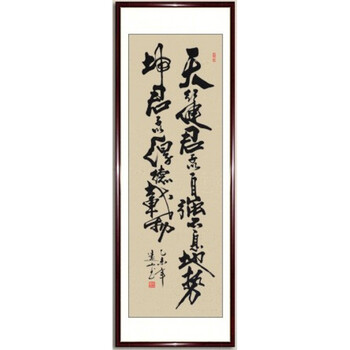 天行健君子以自强不息地势
坤君子以厚德载物
乙未年